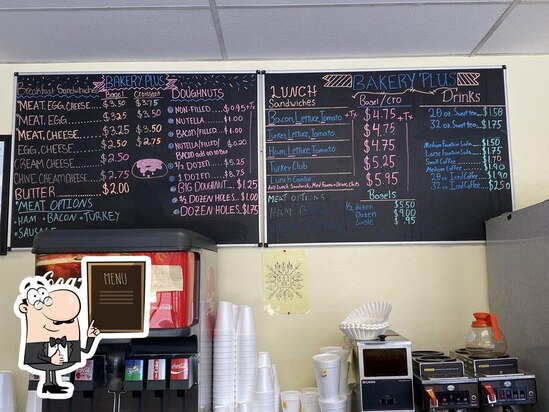 BAKERY PLUS
Breakfast Sandwiches Bagel Croissant
MEAT, EGG, CHEESE $3.50 $3.75
MEAT, EGG $3.25 $3.50
MEAT, CHEESE $3.25 $3.50
EGG, CHEESE $2.50 $2.75
CREAM CHEESE $2.50
CHIVE CREAM CHEESE $2.75
BUTTER $2.00
*MEAT OPTIONS
•HAM •BACON •TURKEY
•SAUSAGE
DOUGHNUTS
NON-FILLED $0.95+Tx
NUTELLA $1.00
BACON/FILLED $1.00
NUTELLA/FILLED $0.20
BACON add on to bar
1/2 DOZEN $5.25
1 DOZEN $8.75
BIG DOUGHNUT $1.25
1/2 DOZEN HOLES $1.00
DOZEN HOLES $1.75
BAKERY PLUS
LUNCH
Sandwiches
Bagel/cro
Bacon, Lettuce, Tomato +Tx $4.75 +Tx
Turkey, Lettuce, Tomato $4.75
Ham, Lettuce, Tomato $4.75
Turkey Club $5.25
Lunch Combo $5.95
Any Lunch Sandwich, Med Fountain Drink, Chips
MEAT OPTIONS
Bagels
1/2 dozen $5.50
Dozen $9.00
Single $.95
Drinks
20 oz. Sweet tea $1.50
32 oz. Sweet tea $1.75
Medium Fountain Soda $1.50
Large Fountain Soda $1.75
Small Coffee $1.70
Medium Coffee $1.90
20 oz. Iced Coffee $1.90
32 oz. Iced Coffee $2.50
MENU
BUNN